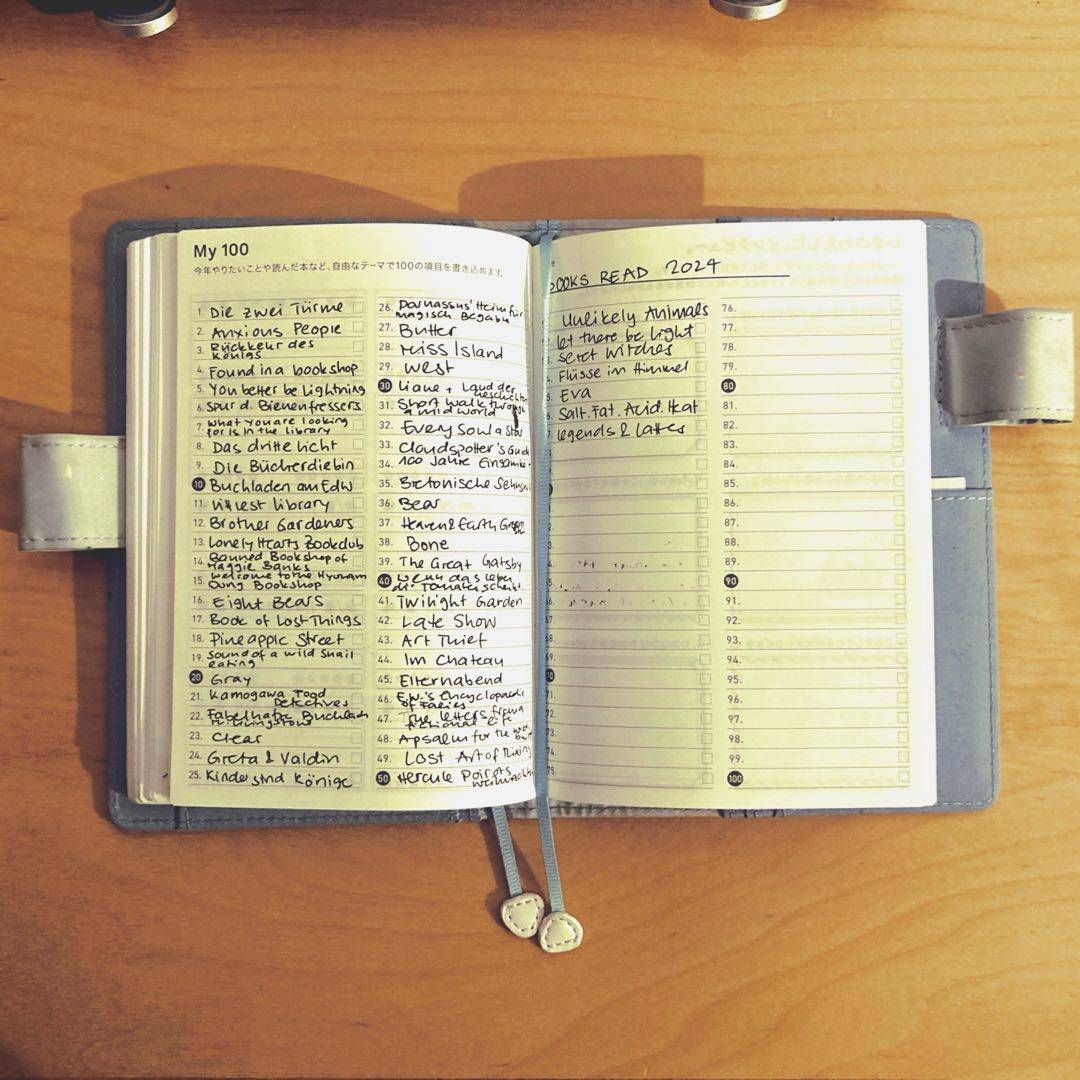 My 100
今年やりたいことや読んだ本など、自由なテーマで100の項目を書き込めます。
1. Die zwei Türme
2. Anxious People
3. Rückkeur des
Königs
4. Found in a bookshop
5. You better be Lightning
6. Spur d. Bienenfressers
7. What you are looking
for is in the library
8. Das dritte Licht
9. Die Bücherdiebin
10 Buchladen am Edw
11. library
12. Brother Gardeners
13. Lonely Hearts Bookclub
14. Banned Bookshop of
Maggie Banks
15. Welcome to the Hyunam
Dong Bookshop
16. Eight Bears
17. Book of Lost Things
18. Pineapple Street
19. Sound of a wild snail
eating
20 Gray
21. Kamogawa Food
Detectives
22. Fabelhafte Buchladen
Livingstone
23. Clear
24. Greta & Valdin
25. Kinder sind Könige
26. Parnassus' Heim für
magisch Begabte
27. Butter
28. Miss Island
29. West
30 Liane + Land der
Geschichten
31. Short walk through
a mid world
32. Every soul a Star
33. Cloudspotter's Guide
34. 100 Jahre Einsamke
35. Bretonische Sehnsu
36. Bear
37. Heaven & Earth Gro
38. Bone
39. The Great Gatsby
40 Wenn das Leben
dir Tomaten schenkt
41. Twilight Garden
42. Late Show
43. Art Thief
44. Im Chateau
45. Elternabend
46. E.W.'s Encyclopaedi
of Faeries
47. The letters from a
fictional life
48. A psalm for the
49. Lost Art of Mixing
50 Hercule Poirots
Weihnachten
OOKS READ 2024
Unlikely Animals
let there be light
Secret Witches
Flüsse im Himmel
Eva
Salt. Fat. Acid. Heat
Legends & Lattes
68.
71.
72.
73.
74.
75.
76.
77.
78.
79.
80
81.
82.
83.
84.
85.
86.
87.
88.
89.
90
91.
92.
93.
94.
95.
96.
97.
98.
99.
100